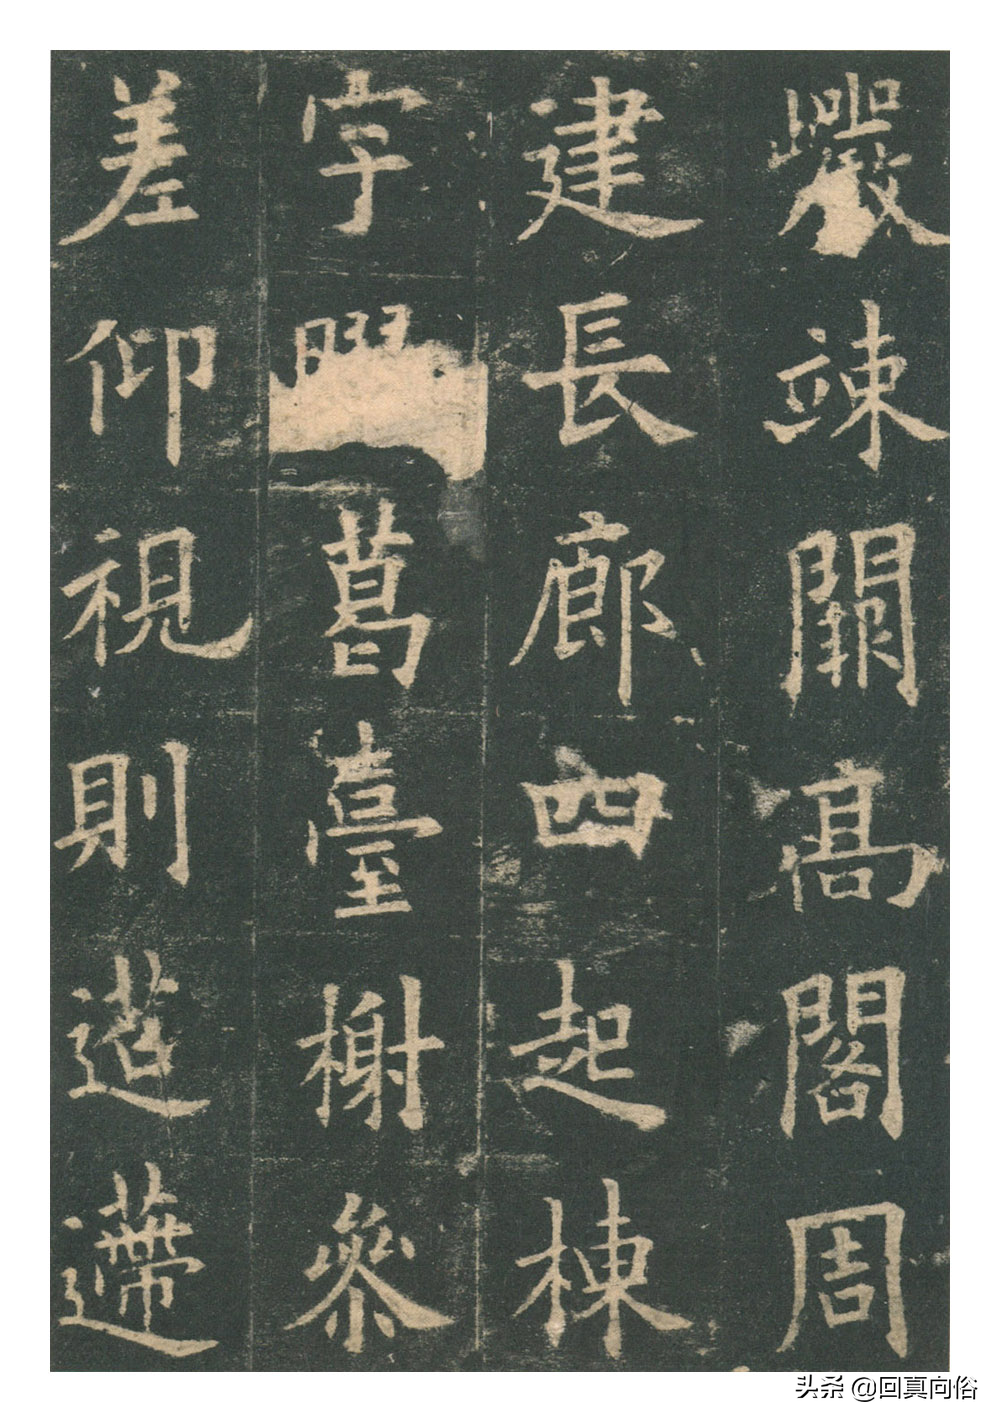 巖竦闕高閣周
建長廊四起棟
宇葛臺榭參
差仰視則迢遰
头条 @回真向俗